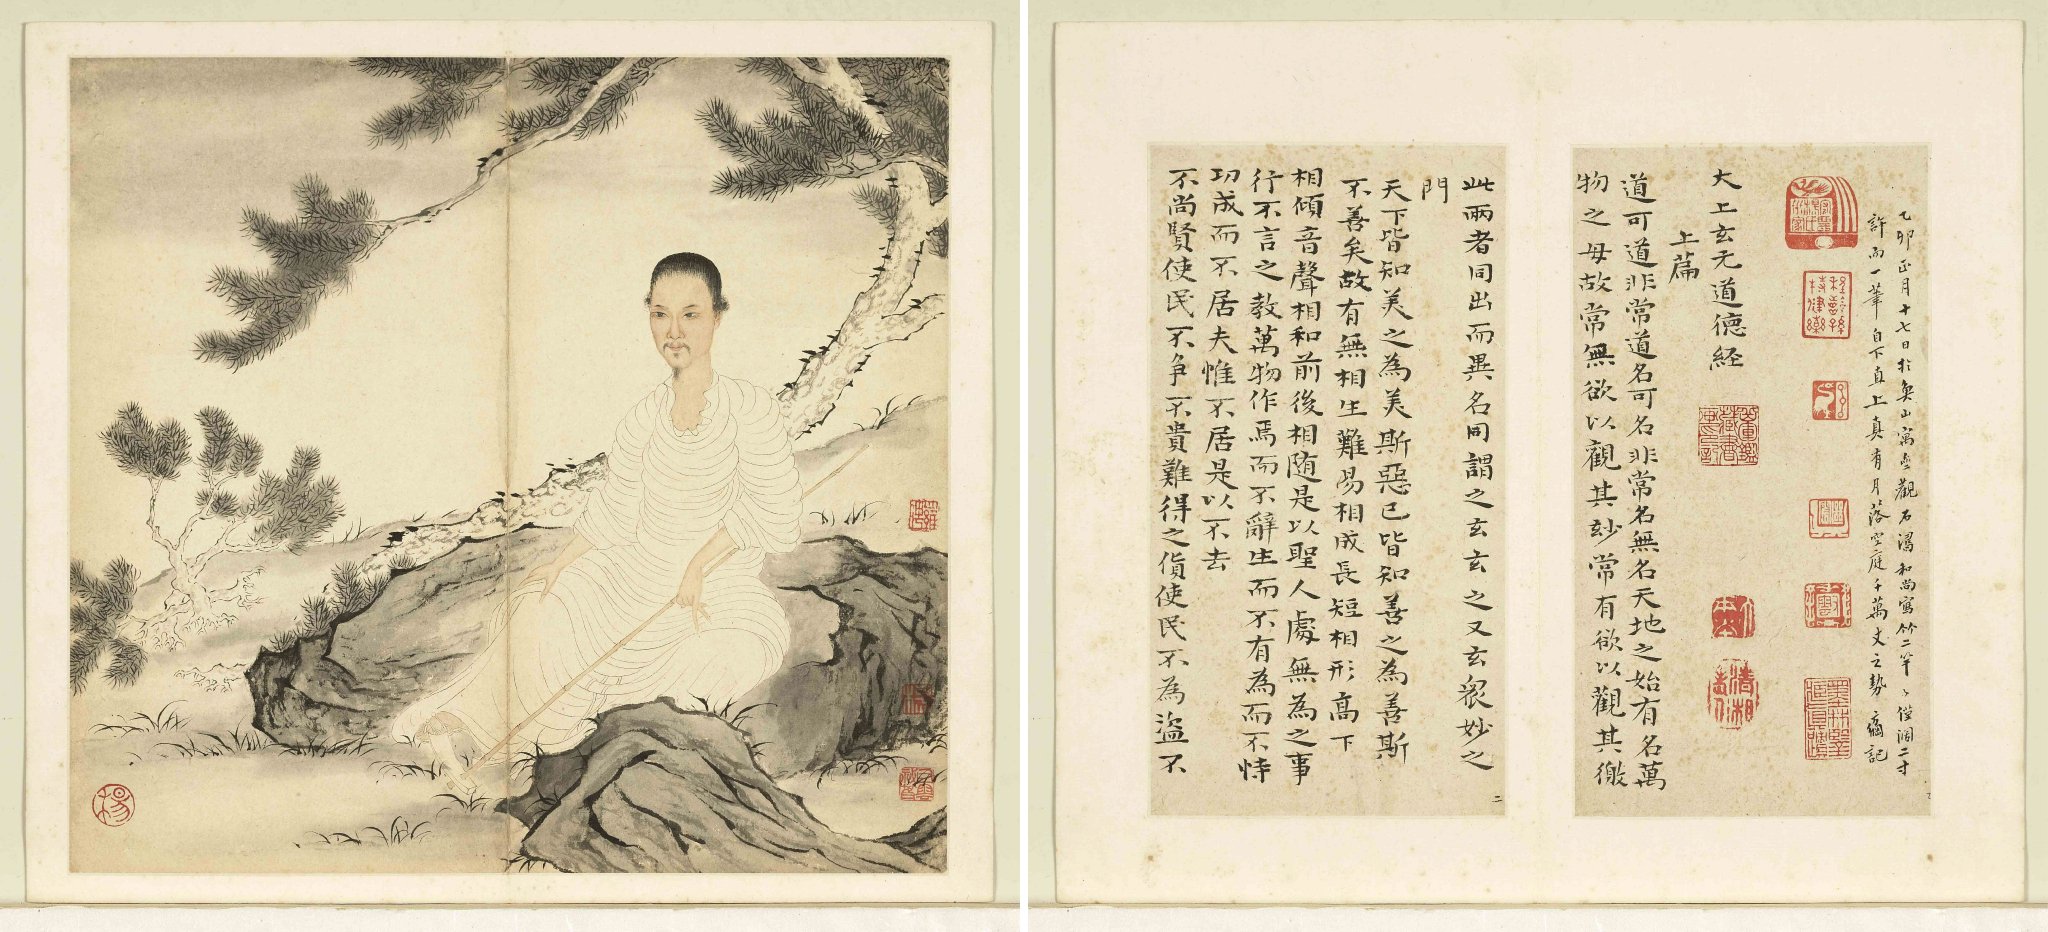 乙卯正月十七日於奐山寓壺觀石濤和尚寫竹二竿々僅濶二寸
許而一筆自下直上真有月落空庭千萬丈之勢 記
大上玄元道德経
上篇
道可道非常道名可名非常名無名天地之始有名萬
物之母故常無欲以觀其玅常有欲以觀其徼
此兩者同出而異名同謂之玄玄之又玄衆妙之
門
天下皆知美之為美斯惡已皆知善之為善斯
不善矣故有無相生難易相成長短相形高下
相傾音聲相和前後相随是以聖人處無為之事
行不言之教萬物作焉而不辭生而不有為而不恃
功成而不居夫惟不居是以不去
不尚賢使民不争不貴難得之貨使民不為盜不
二
清湘老人
楊